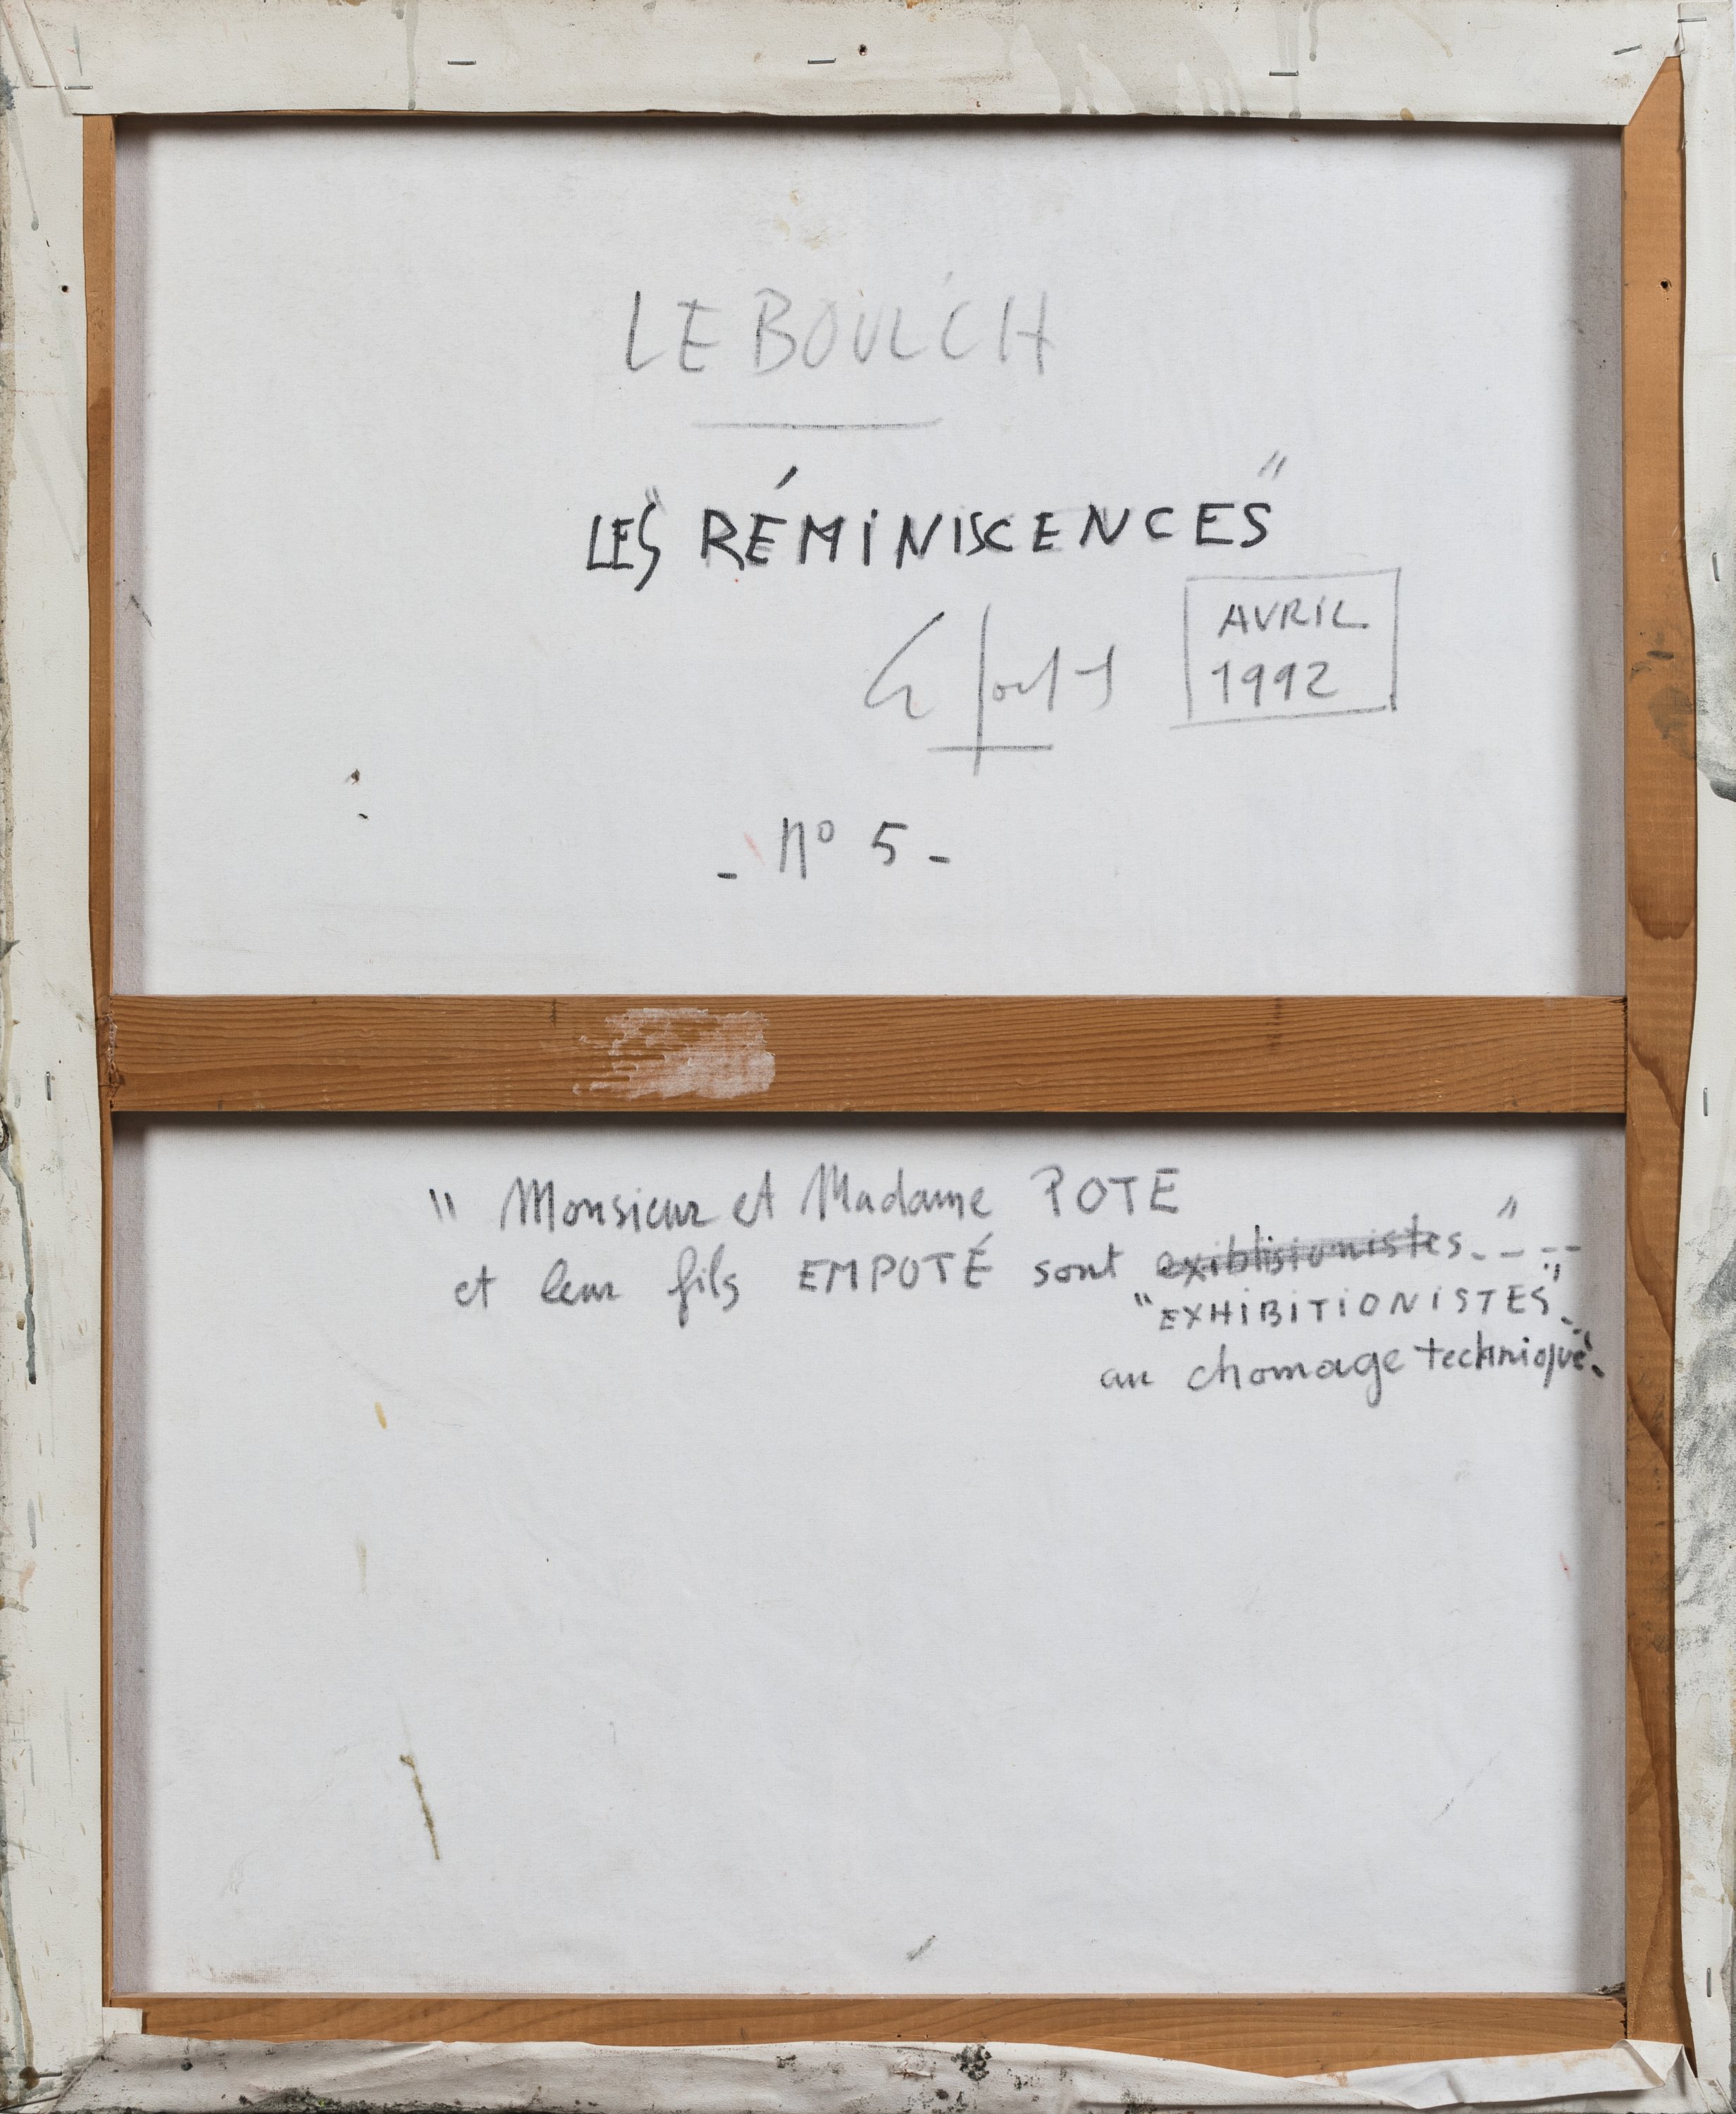 LE BOUL'CH
LES "RÉMINISCENCES"
AVRIL
1992
- N° 5 -
" Monsieur et Madame POTE
et leur fils EMPOTÉ sont exiblisionistes. - - - "
"EXHIBITIONISTES"
au chomage technique.